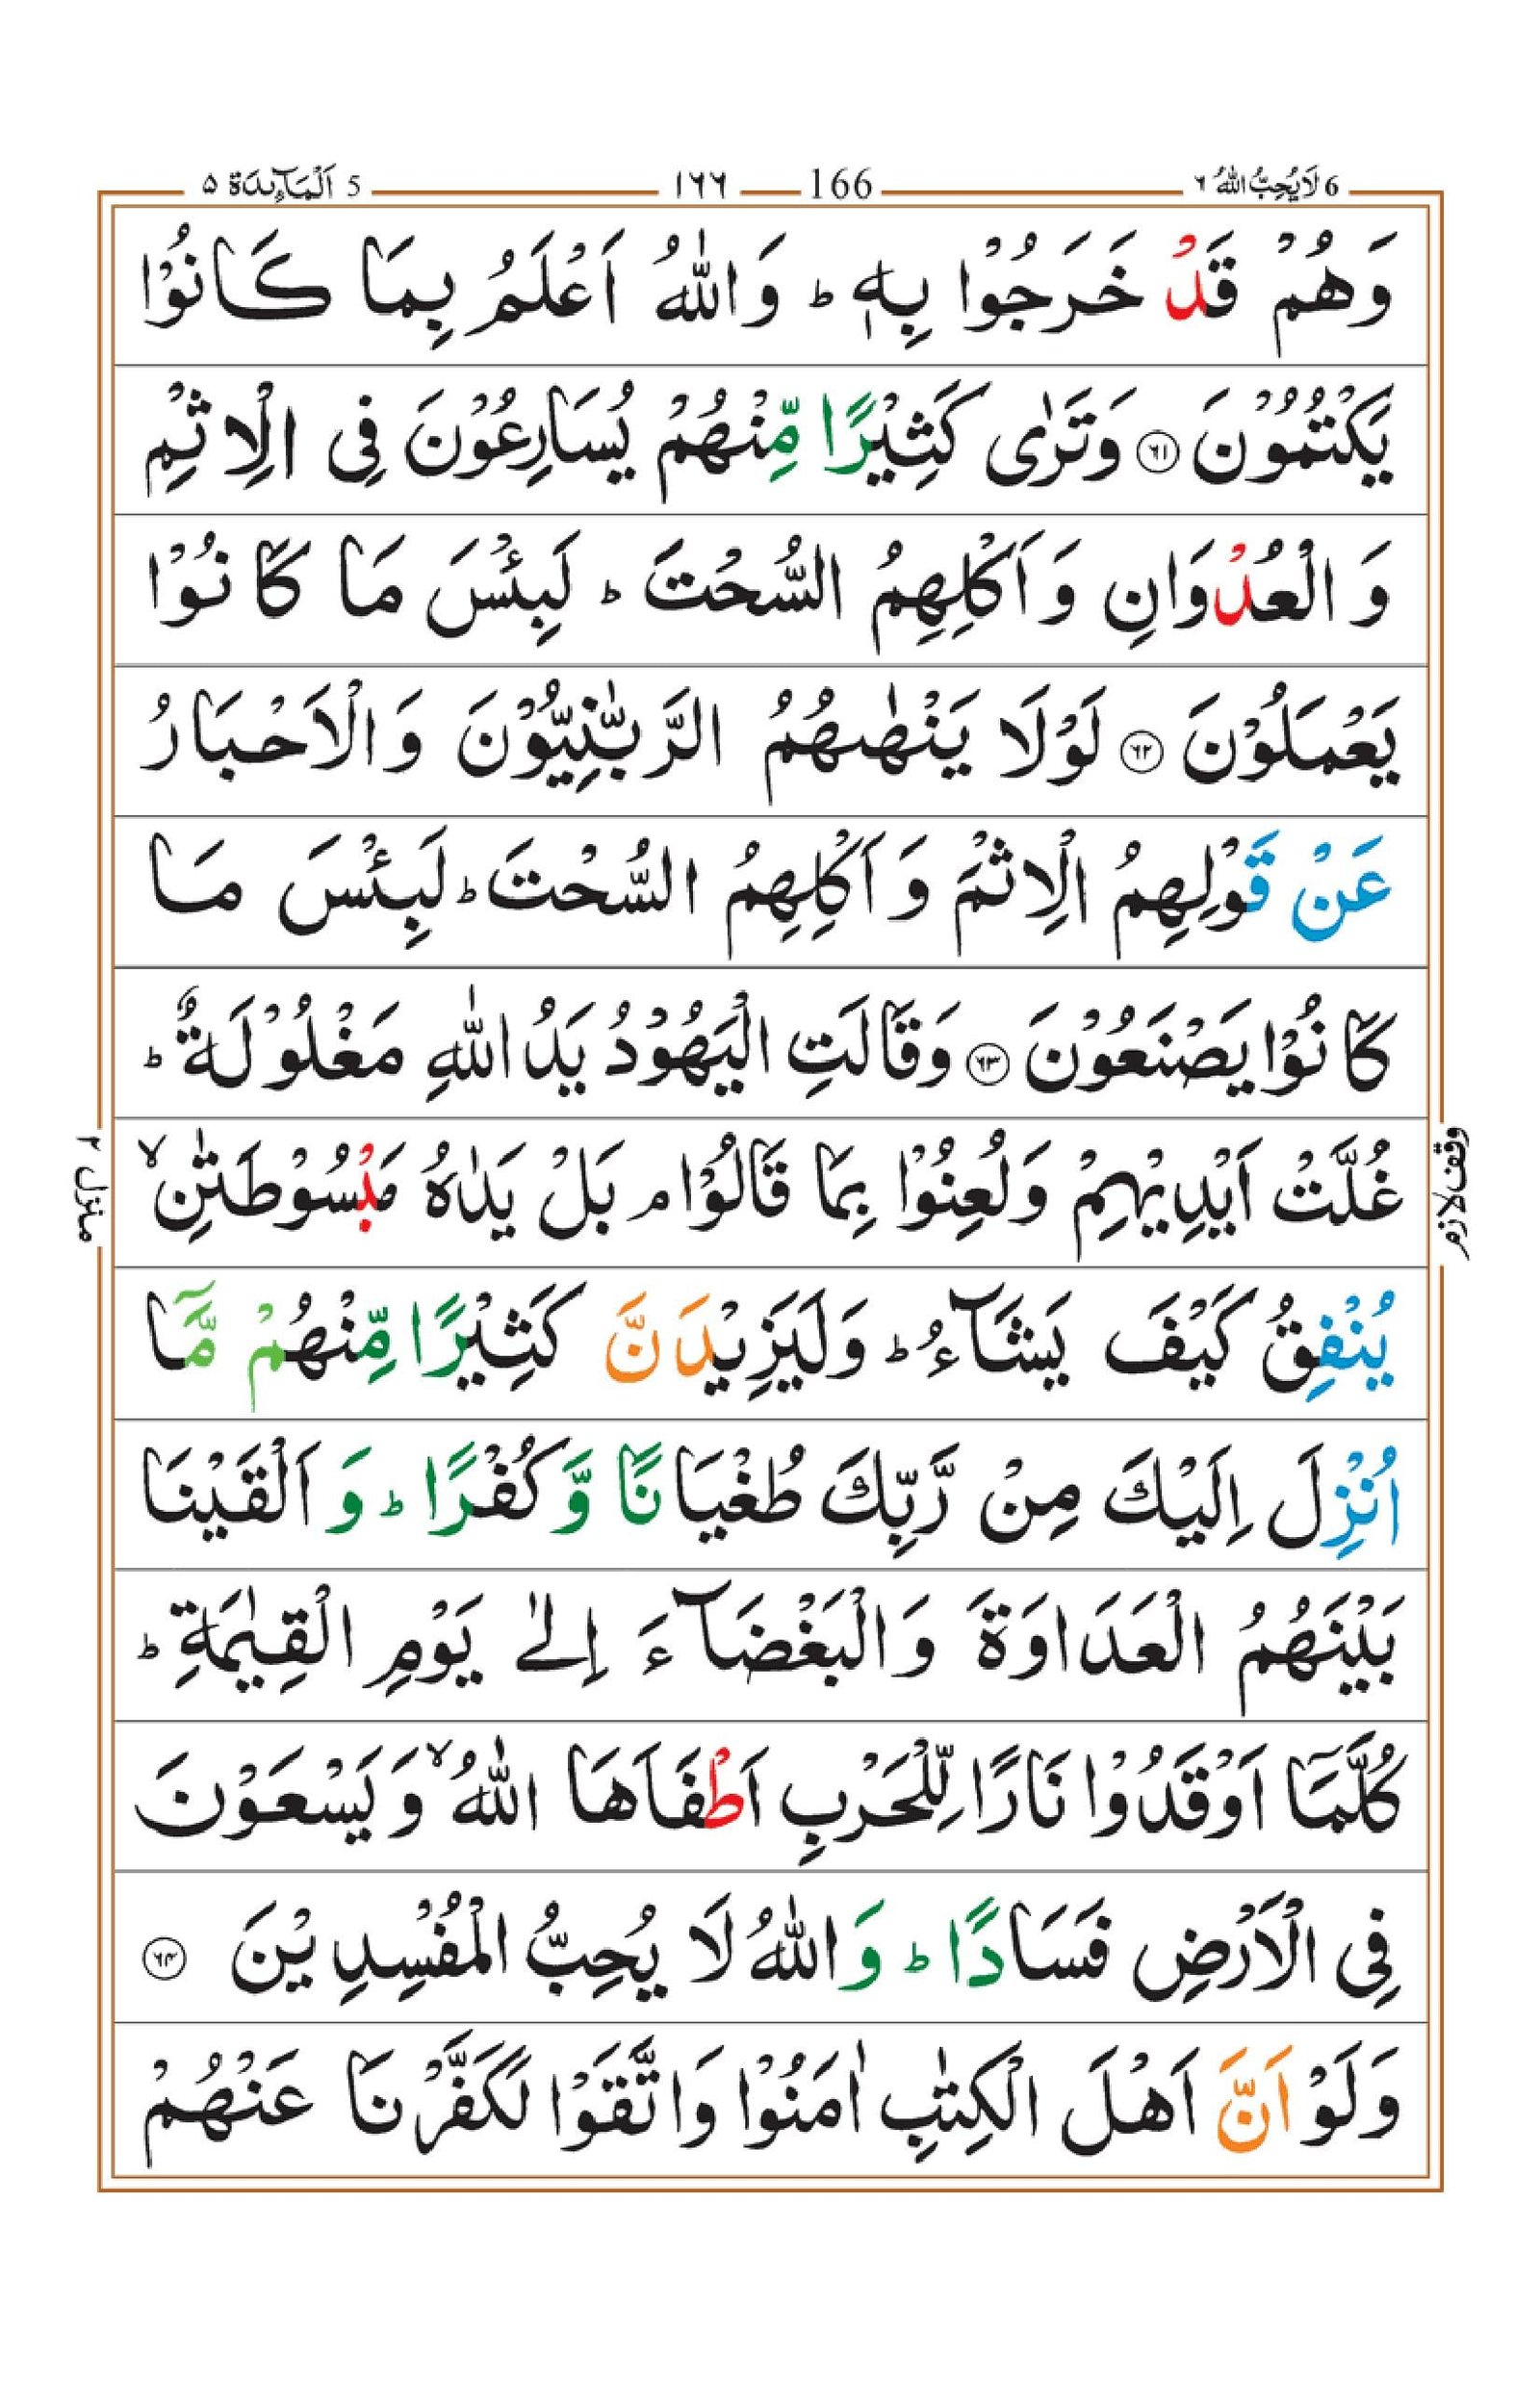 6 لَا يُحِبُّ اللّٰهُ ٦ 166 ١٦٦ 5 اَلْمَآئِدَة ٥
وَهُمْ قَدْ خَرَجُوْا بِهٖ ؕ وَاللّٰهُ اَعْلَمُ بِمَا كَانُوْا
يَكْتُمُوْنَ ٦١ وَتَرٰى كَثِيْرًا مِّنْهُمْ يُسَارِعُوْنَ فِى الْاِثْمِ
وَ الْعُدْوَانِ وَاَكْلِهِمُ السُّحْتَ ؕ لَبِئْسَ مَا كَانُوْا
يَعْمَلُوْنَ ٦٢ لَوْلَا يَنْهٰىهُمُ الرَّبّٰنِيُّوْنَ وَالْاَحْبَارُ
عَنْ قَوْلِهِمُ الْاِثْمَ وَاَكْلِهِمُ السُّحْتَ ؕ لَبِئْسَ مَا
كَانُوْا يَصْنَعُوْنَ ٦٣ وَقَالَتِ الْيَهُوْدُ يَدُ اللّٰهِ مَغْلُوْلَةٌ ؕ
غُلَّتْ اَيْدِيْهِمْ وَلُعِنُوْا بِمَا قَالُوْا ۘ بَلْ يَدٰهُ مَبْسُوْطَتٰنِ ۙ
وقف لازم
منزل ٢
يُنْفِقُ كَيْفَ يَشَآءُ ؕ وَلَيَزِيْدَنَّ كَثِيْرًا مِّنْهُمْ مَّآ
اُنْزِلَ اِلَيْكَ مِنْ رَّبِّكَ طُغْيَانًا وَّكُفْرًا ؕ وَ اَلْقَيْنَا
بَيْنَهُمُ الْعَدَاوَةَ وَالْبَغْضَآءَ اِلٰى يَوْمِ الْقِيٰمَةِ ؕ
كُلَّمَآ اَوْقَدُوْا نَارًا لِّلْحَرْبِ اَطْفَاَهَا اللّٰهُ ۙ وَيَسْعَوْنَ
فِى الْاَرْضِ فَسَادًا ؕ وَاللّٰهُ لَا يُحِبُّ الْمُفْسِدِيْنَ ٦٤
وَلَوْ اَنَّ اَهْلَ الْكِتٰبِ اٰمَنُوْا وَاتَّقَوْا لَكَفَّرْنَا عَنْهُمْ